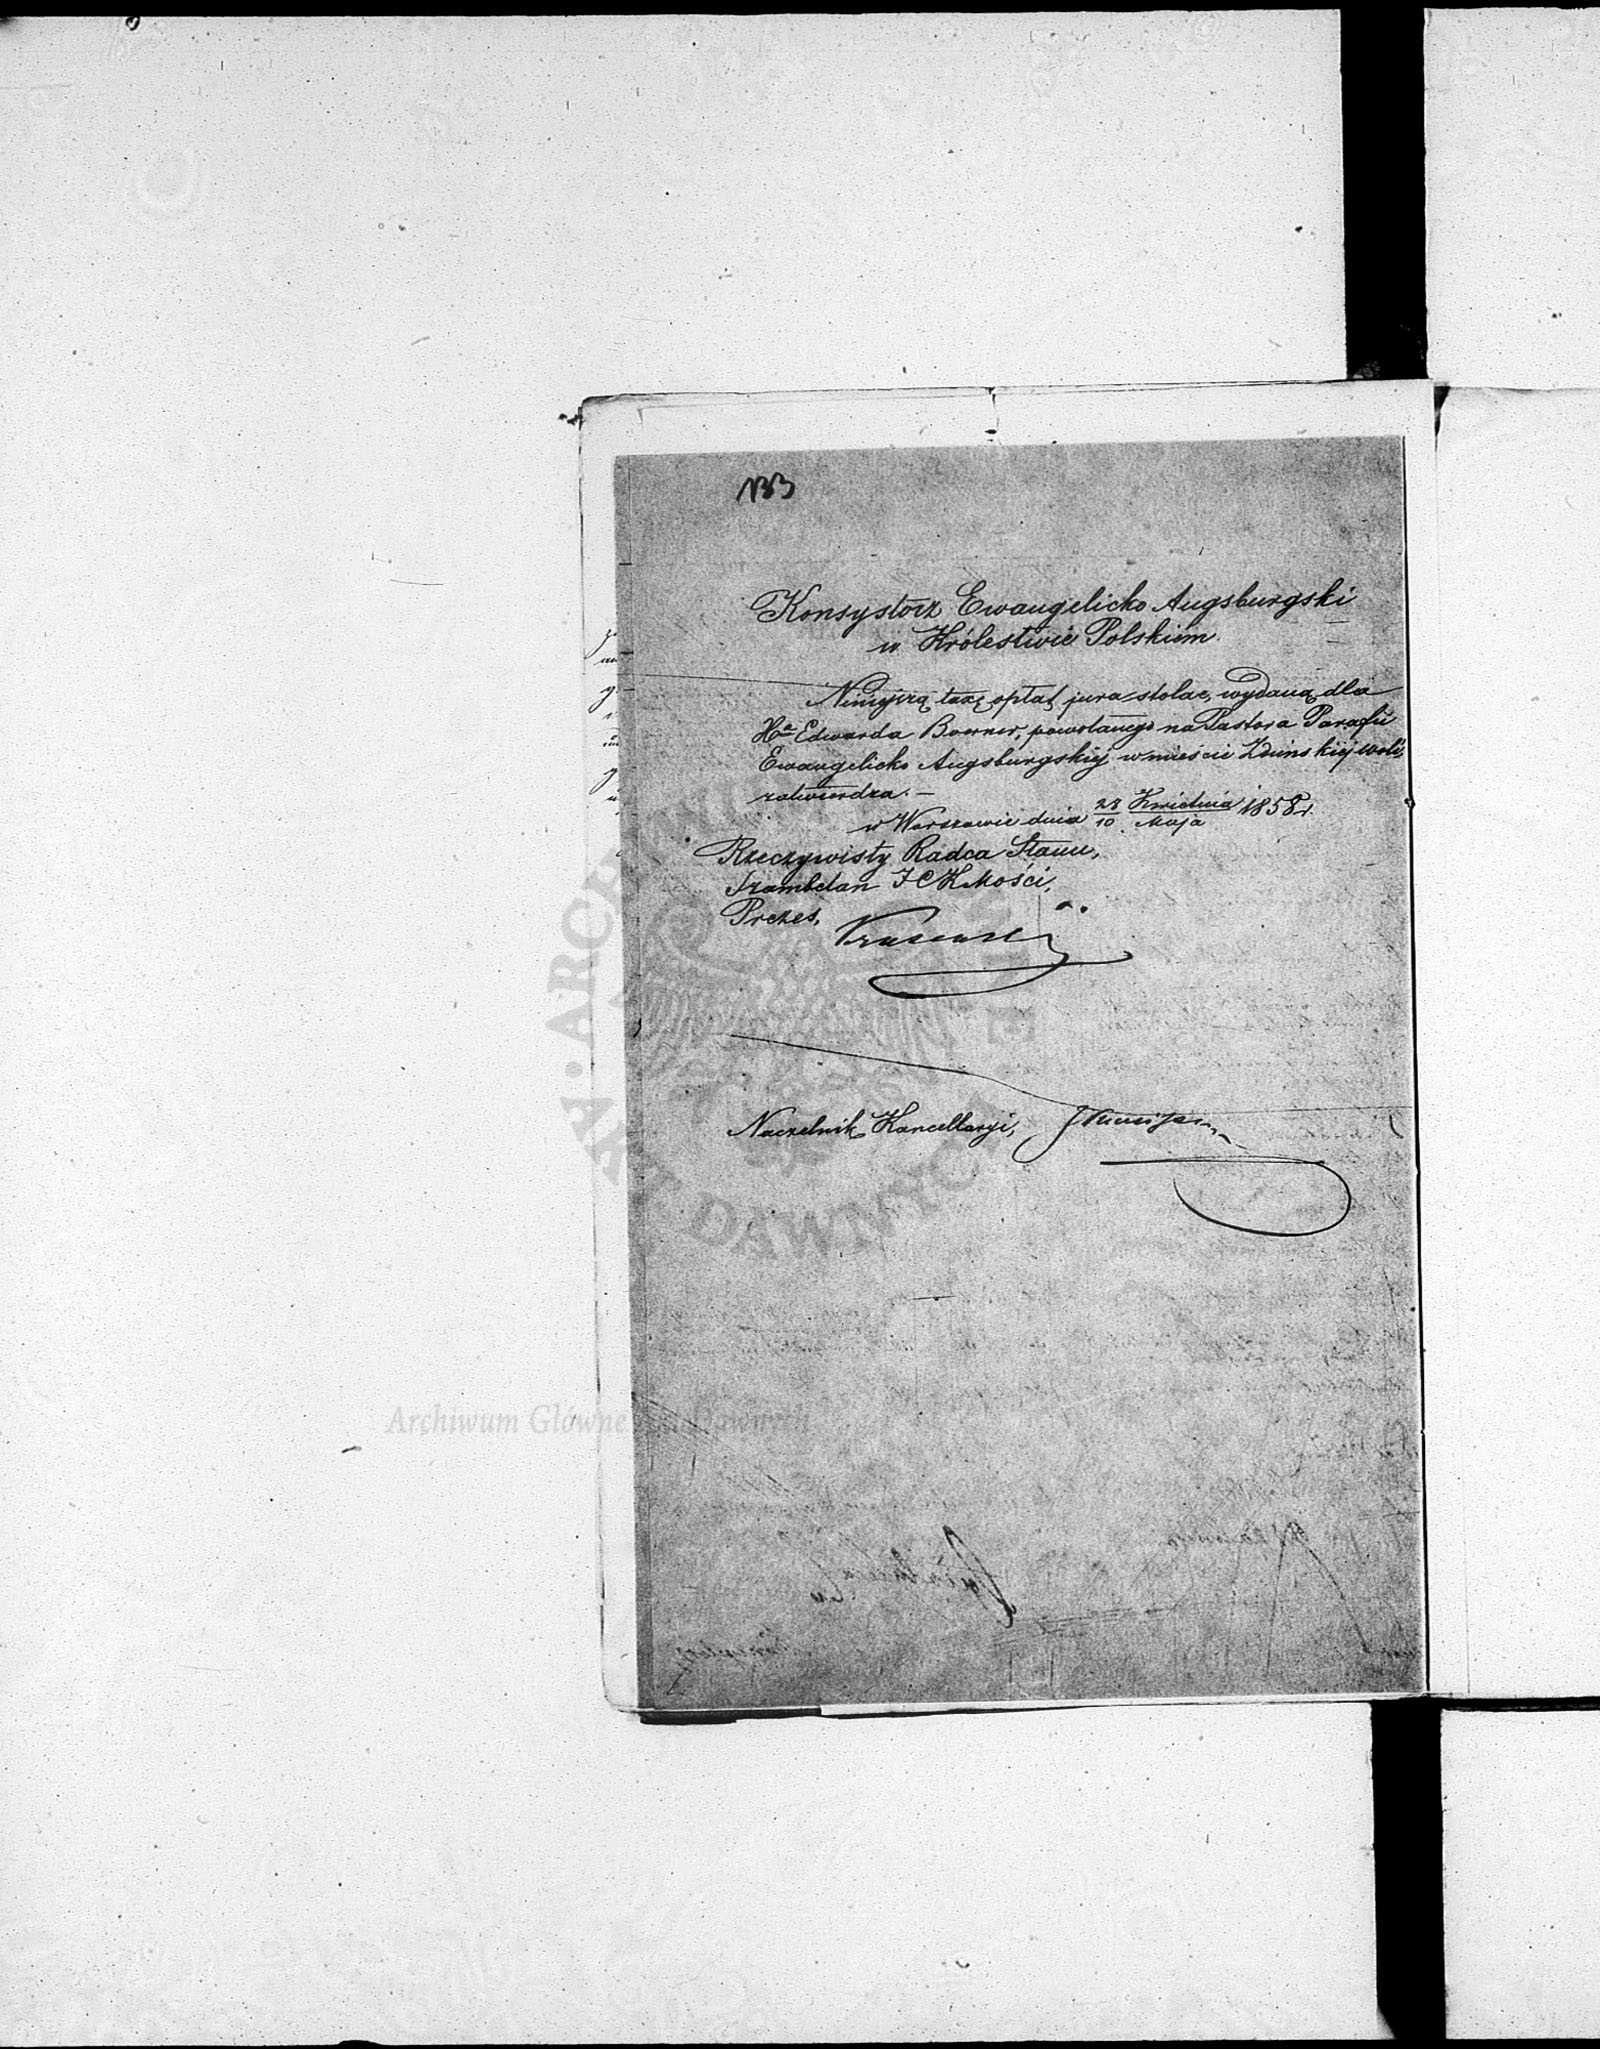 133
Konsystorz Ewangelicko Augsburgski
w Królestwie Polskiem.
Niniejszą taxę opłat jura stolae, wydaną dla
Xa Edwarda Boerner, powołanego na Pastora Parafii
Ewangelicko Augsburgskiej w mieście Zduńskiej woli,
zatwierdza. —
w Warszawie dnia 28/10 Kwietnia/Maja 1858 r.
Rzeczywisty Radca Stanu,
Szambelan JCKMości,
Prezes,
Naczelnik Kancellaryi,
ARCH
DAWNYCH
Archiwum Główne Akt Dawnych